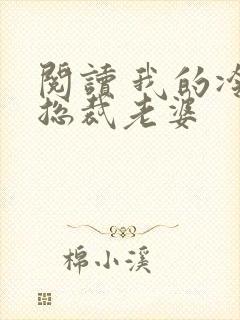 閱讀我的冷
總裁老婆
棉小溪